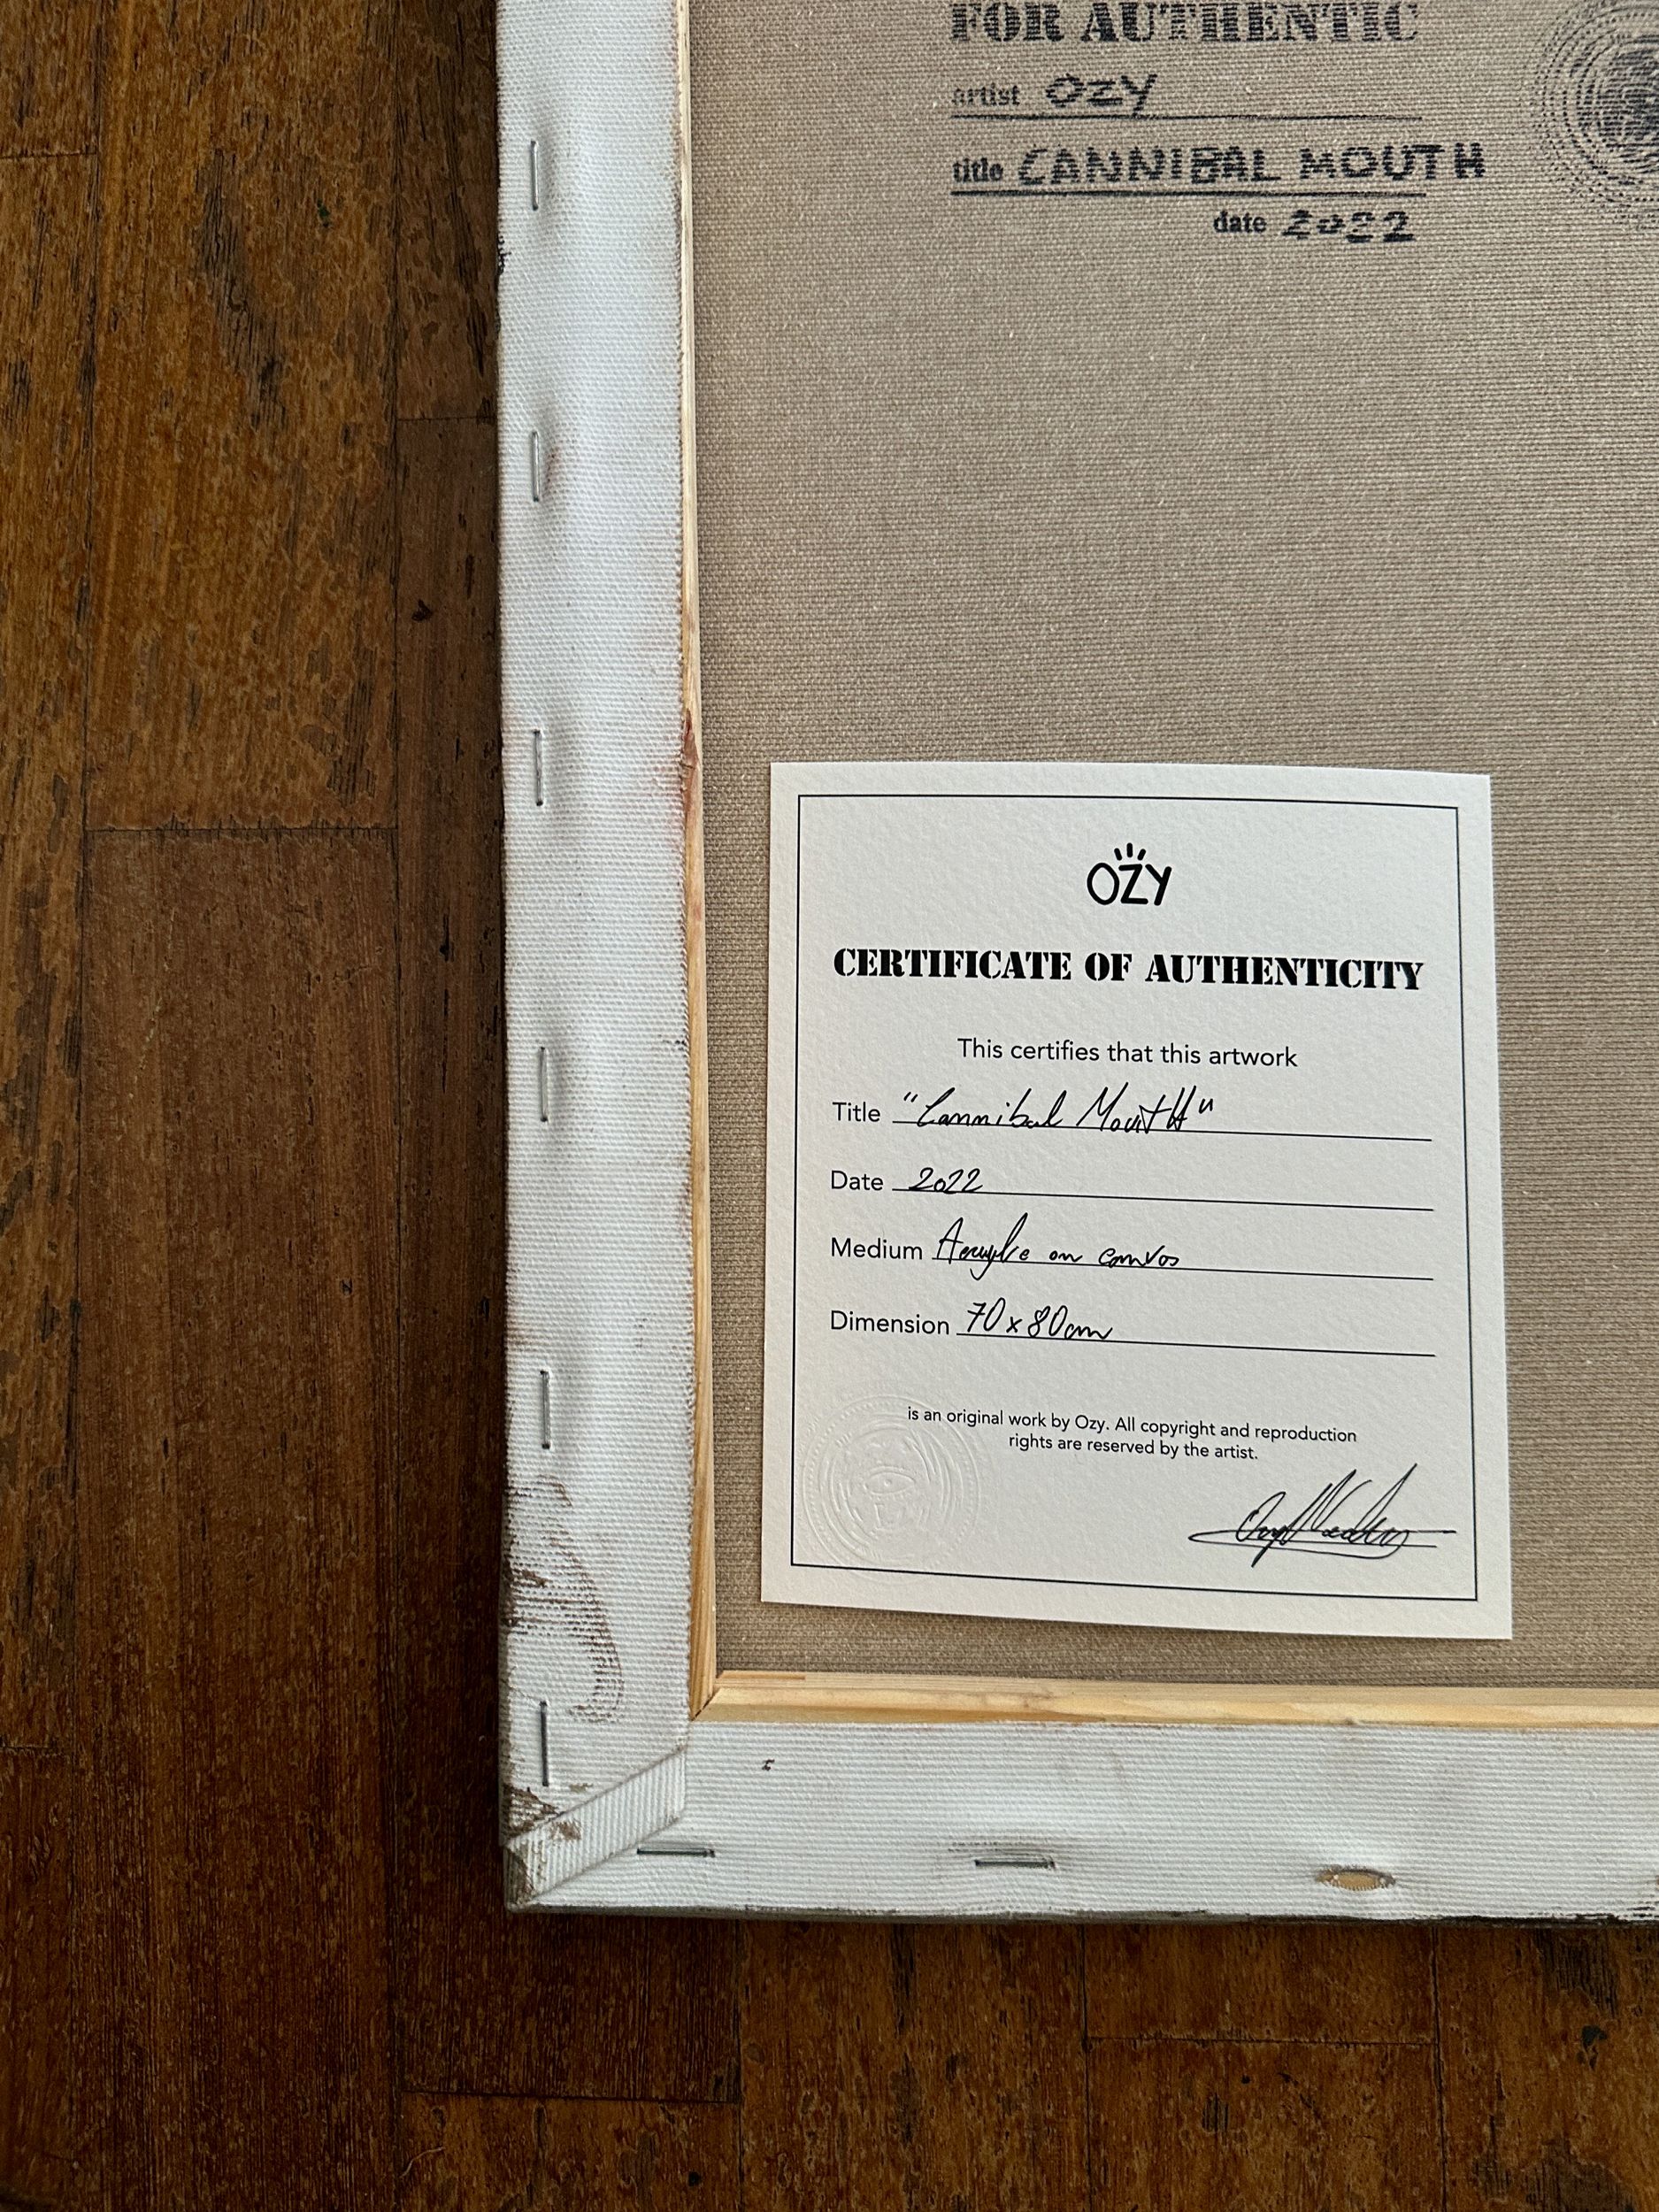 FOR AUTHENTIC
artist Ozy
title CANNIBAL MOUTH
date 2022
OZY
CERTIFICATE OF AUTHENTICITY
This certifies that this artwork
Title "Cannibal MoutH"
Date 2022
Medium Acrylic on canvas
Dimension 70x80cm
is an original work by Ozy. All copyright and reproduction
rights are reserved by the artist.